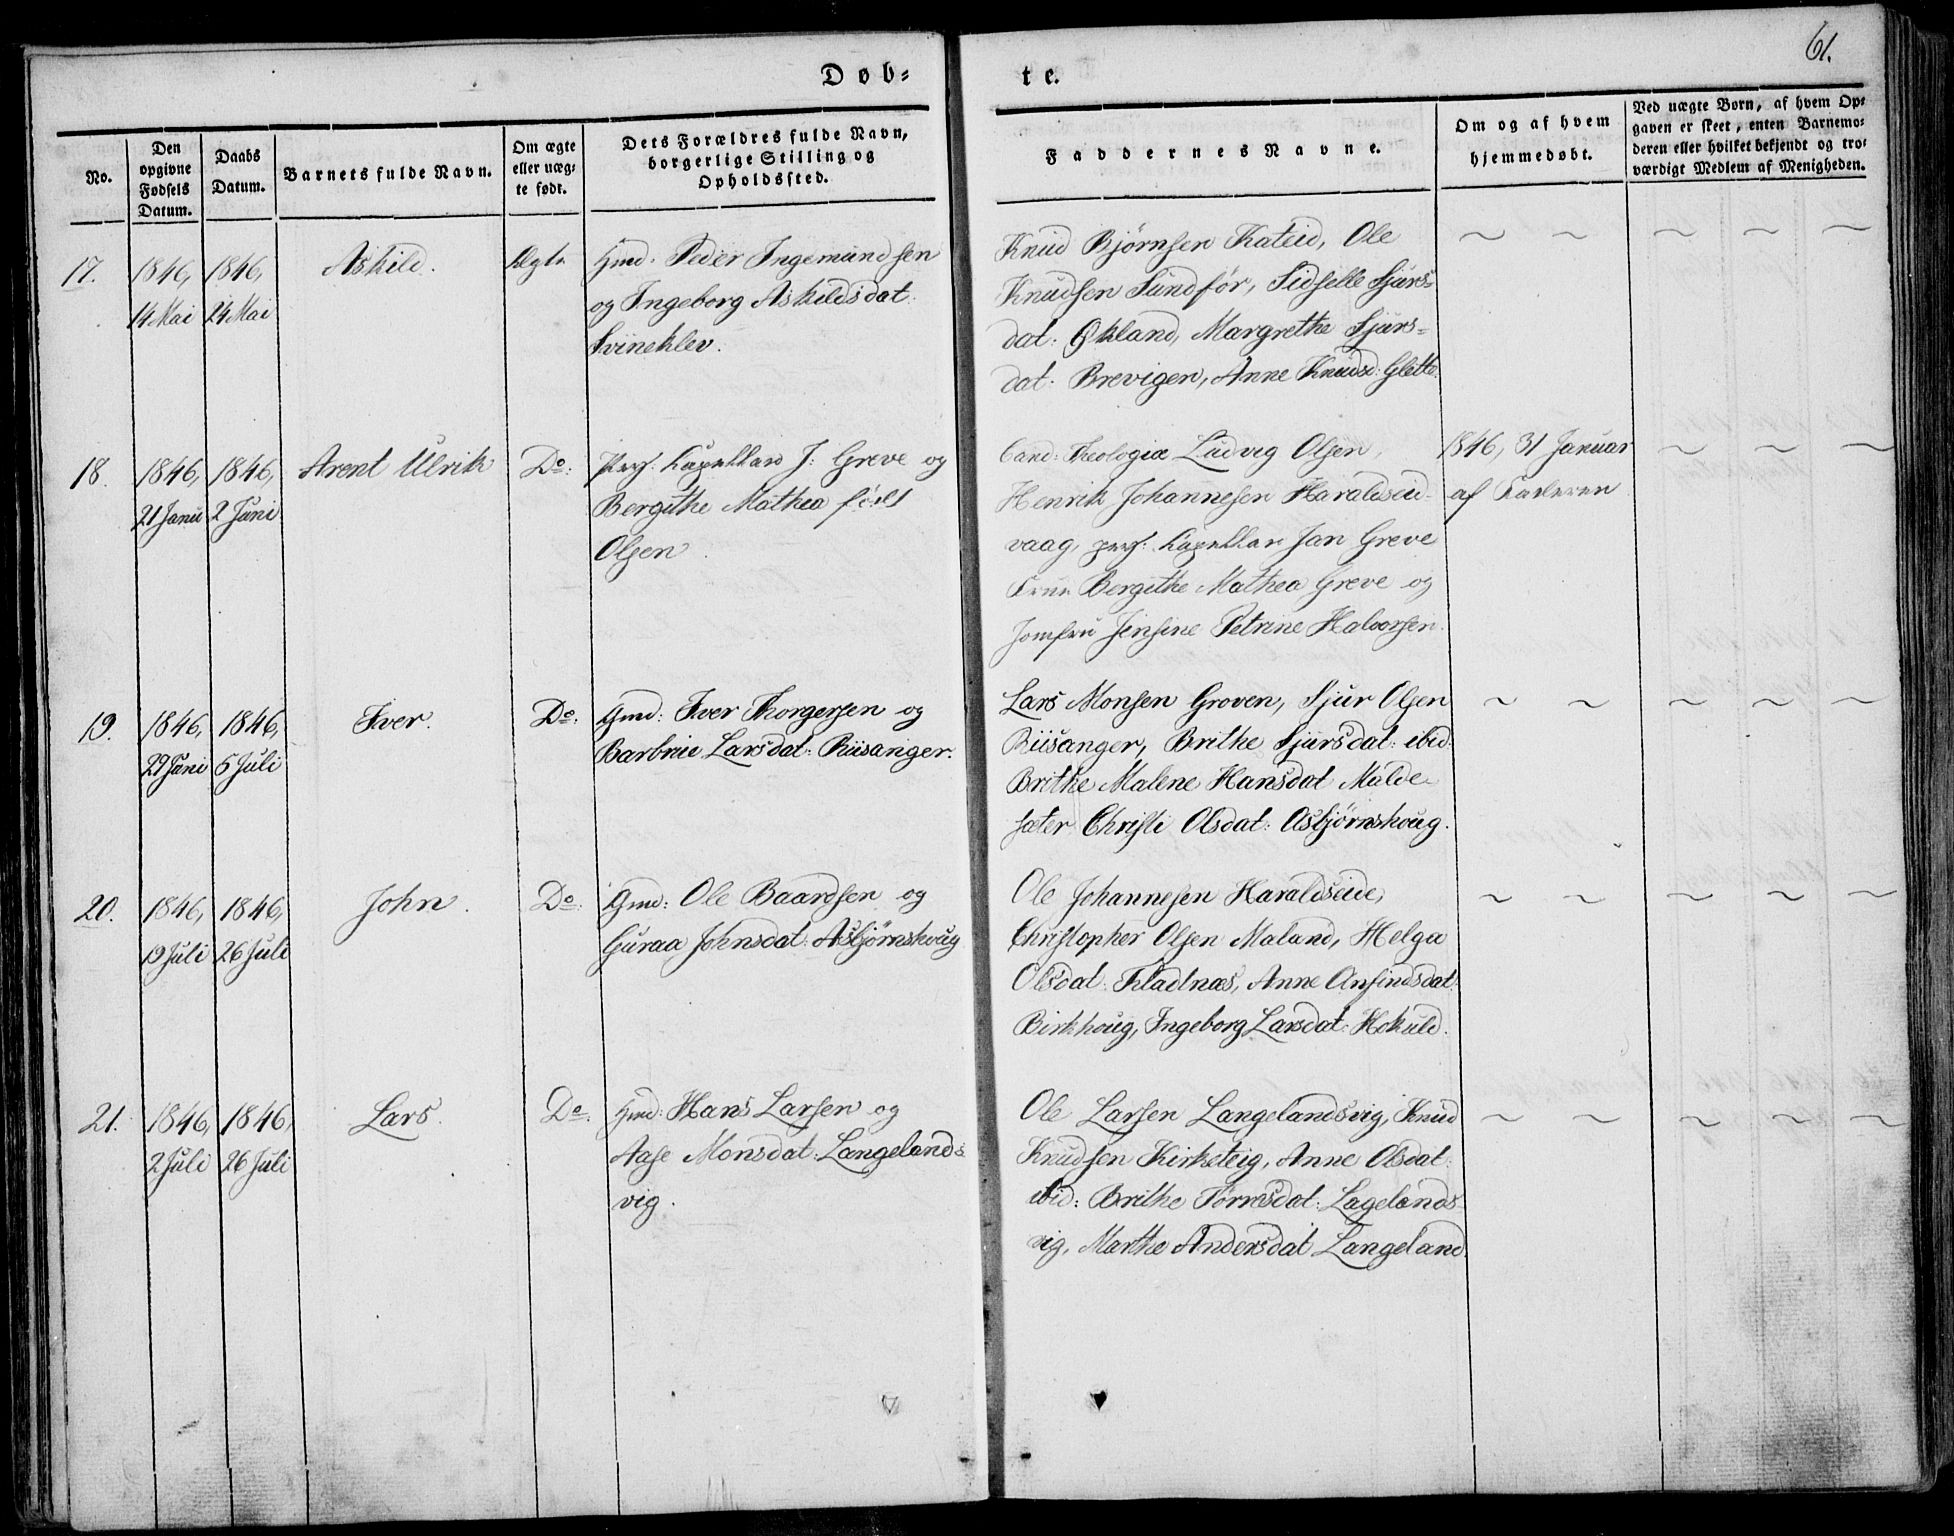 61.
Døb=
te.
No.
Den opgivne Fødsels Datum.
Daabs Datum.
Barnets fulde Navn.
Om ægte eller uæg= te født.
Dets Forældres fulde Navn, borgerlige Stilling og Opholdssted.
Faddernes Navne.
Om og af hvem hjemmedøbt.
Ved uægte Børn, af hvem Op= gaven er skeet, enten Barnemo= deren eller hvilket bekjendt og tro= værdigt Medlem af Menigheden.
17.
1846, 14 Mai
1846, 24 Mai
Askild.
Ægte
Gmd: Peder Ingemundsen
og Ingeborg Askildsdat:
Svineklev.
Knud Bjørnsen Kateid, Ole
Knudsen Sundfør, Sidselle Sjurs=
dat: Økland, Margrethe Sjurs=
dat: Brevigen, Anne Knudsd: Glette.
18.
1846, 21 Janu
1846, 2 Juni
Arent Ulrik
Do:
pers: Kapellan J: Greve og
Bergithe Mathea født
Olsen.
Cand: Theologiæ Ludvig Olsen,
Henrik Johannesen Haraldseid-
vaag, pers: Kapellan Jan Greve
Frue Bergithe Mathea Greve og
Jomfru Jensine Petrine Halvorsen.
1846, 31 Januar
af Faderen
19.
1846, 29 Juni
1846, 5 Juli
Iver.
Do:
Gmd: Iver Thorgersen og
Barbrue Larsdat: Riisanger.
Lars Monsen Groven, Sjur Olsen
Riisanger, Brithe Sjursdat: ibid:
Brithe Malene Hansdat Malde-
sæter Christi Olsdat: Asbjørnshoug.
20.
1846, 19 Juli
1846, 26 Juli
John.
Do:
Gmd: Ole Baardsen og
Guraa Johnsdat: Asbjørnshoug
Ole Johannesen Haraldseide,
Christopher Olsen Maland, Helga
Olsdat: Fladtnæs, Anne Anfindsdat:
Birkhoug, Ingeborg Larsdat: Hokuld.
21.
1846, 2 Juli
1846, 26 Juli
Lars.
Do:
Hmd: Hans Larsen og
Aase Monsdat: Langelands
vig.
Ole Larsen Langelandsvig, Knud
Knudsen Kirketeig, Anne Olsdat:
ibid: Brithe Tørresdat: Lagelands-
vig, Marthe Andersdat Langeland.